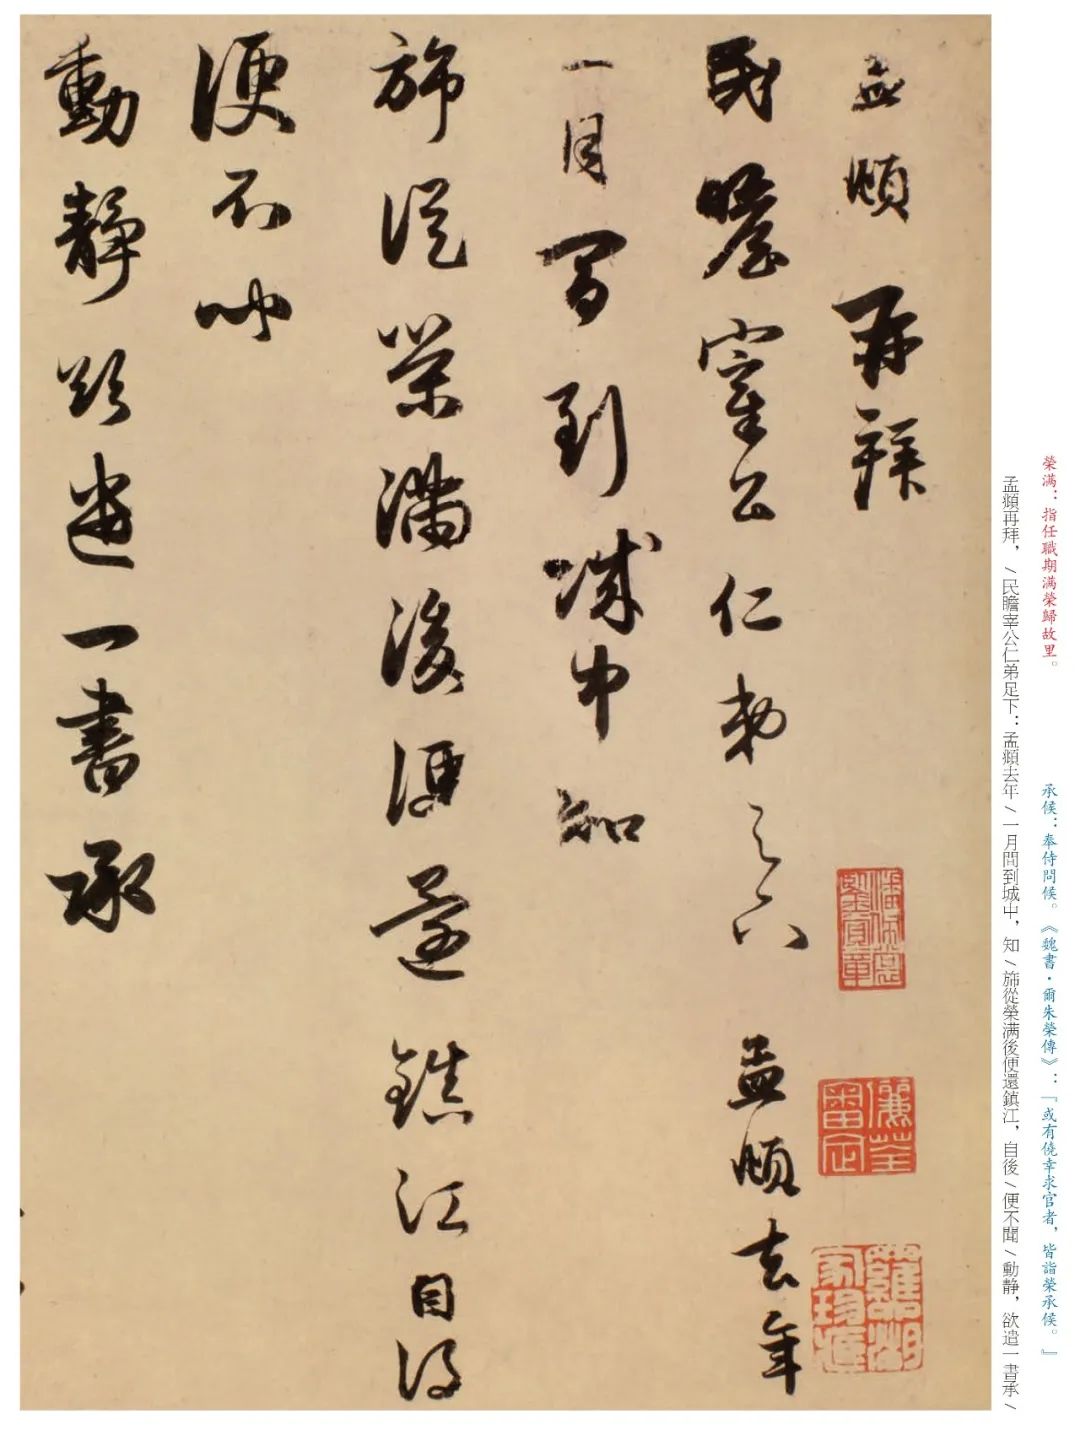 榮满：指任職期满榮歸故里。
承候：奉侍問候。《魏書·爾朱榮傳》：『或有僥幸求官者，皆詣榮承候。』
孟頫再拜，/民瞻宰公仁弟足下：孟頫去年/一月間到城中，知/旆從榮满後便還鎮江，自後/便不聞/動静，欲遣一書承/
孟頫再拜
民瞻宰公仁弟足下孟頫去年
一月間到城中知
旆從榮滿後便還鎮江自後
便不聞
動静欲遣一書承